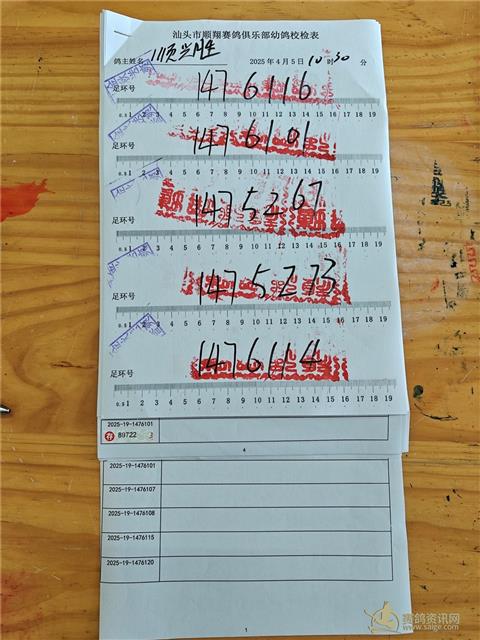 汕头市顺翔赛鸽俱乐部幼鸽校检表
鸽主姓名 顺兴胜 2025 年 4 月 5 日 10 时 30 分
足环号 1476116
0.5 1 2 3 4 5 6 7 8 9 10 11 12 13 14 15 16 17 18 19
足环号 1476101
0.5 1 2 3 4 5 6 7 8 9 10 11 12 13 14 15 16 17 18 19
足环号 1475267
0.5 1 2 3 4 5 6 7 8 9 10 11 12 13 14 15 16 17 18 19
足环号 1475273
0.5 1 2 3 4 5 6 7 8 9 10 11 12 13 14 15 16 17 18 19
足环号 1476114
0.5 1 2 3 4 5 6 7 8 9 10 11 12 13 14 15 16 17 18 19
2025-19-1476101
荐 89722
4
2025-19-1476101
2025-19-1476107
2025-19-1476108
2025-19-1476115
2025-19-1476120
1
赛鸽资讯网
www.saige.com